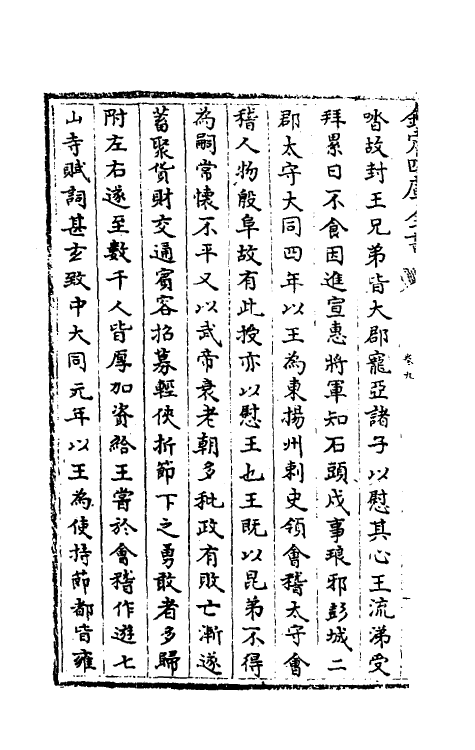 欽定四庫全書
卷九
㳫故封王兄弟皆大郡寵亞諸子以慰其心王流涕受
拜累日不食因進宣惠將軍知石頭戍事琅邪彭城二
郡太守大同四年以王為東揚州刺史領會稽太守會
稽人物殷阜故有此授亦以慰王也王既以昆弟不得
為嗣常懷不平又以武帝衰老朝多秕政有敗亡漸遂
蓄聚貨財交通賓客招募輕俠折節下之勇敢者多歸
附左右遂至數千人皆厚加資給王嘗於會稽作遊七
山寺賦詞甚玄致中大同元年以王為使持節都督雍